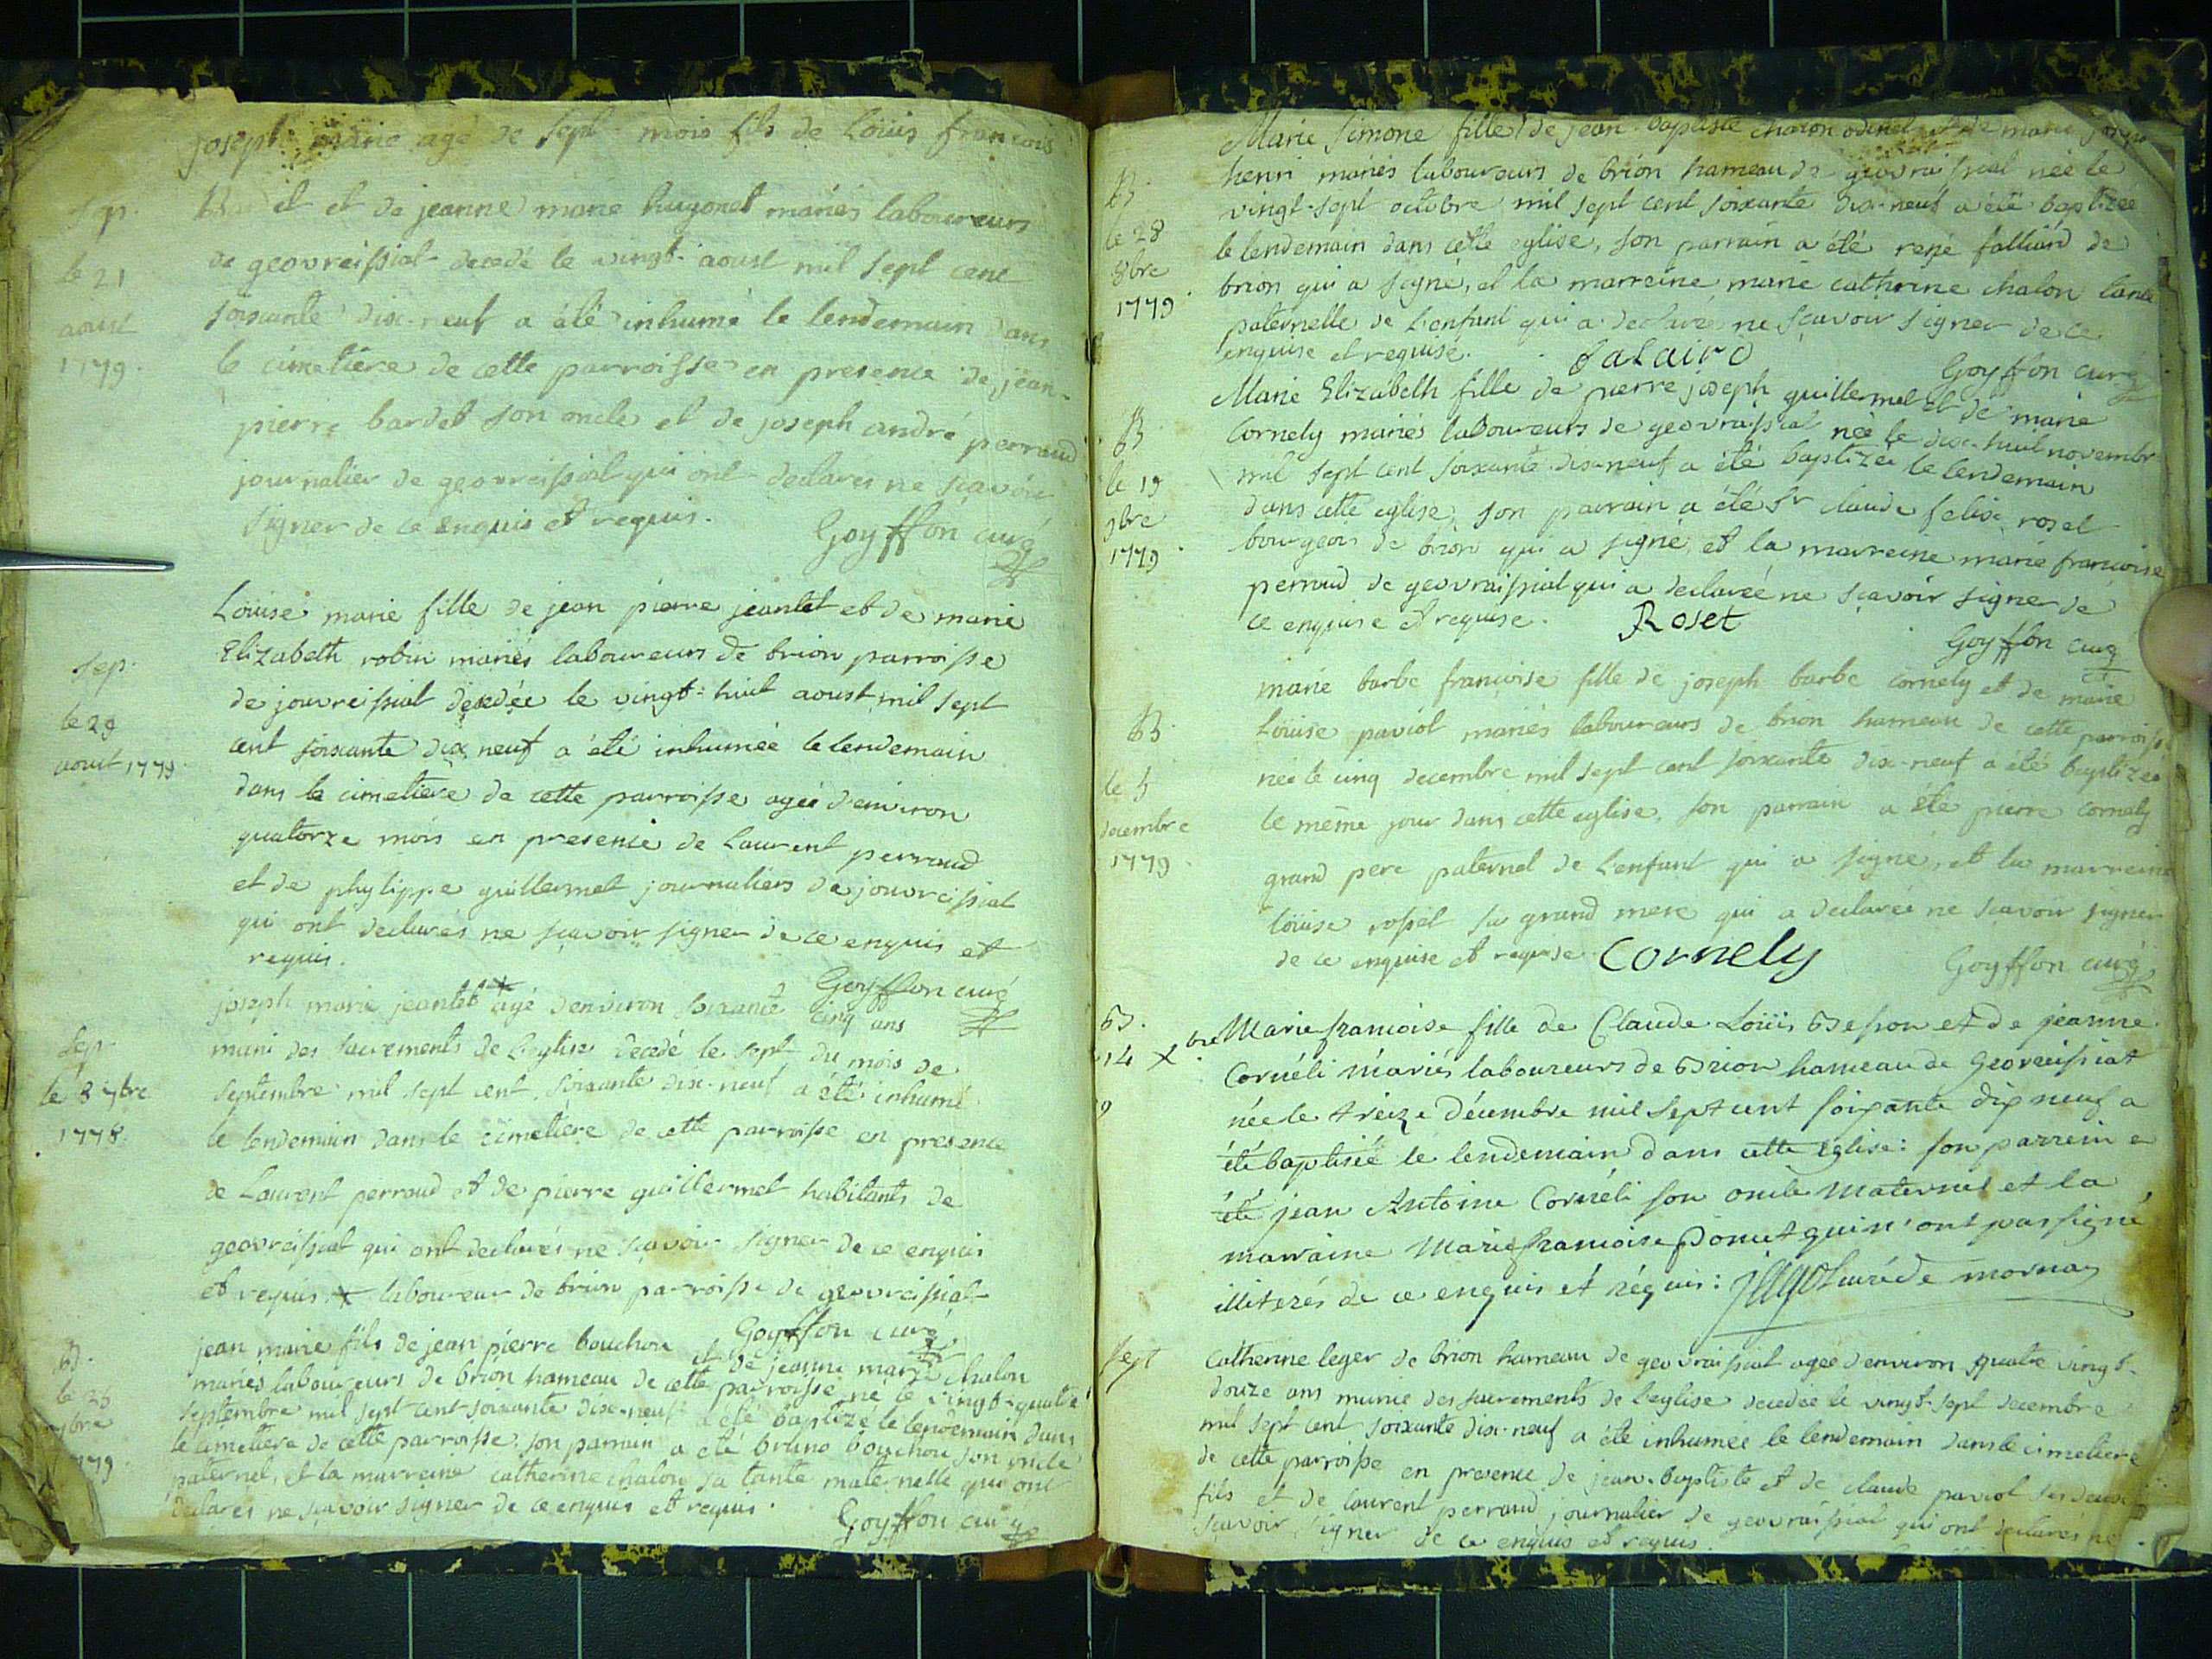 joseph marie agé de sept mois fils de Loüis francois
sep.
le 21
aoust
1779.
Bardet et de jeanne marie hugonet mariés laboureurs
de geovreissiat decedé le vingt aoust mil sept cent
soixante dix-neuf a été inhumé le lendemain dans
le cimetiere de cette parroisse en presence de jean-
pierre bardet son oncle et de joseph andré perraud
journalier de geovreissiat qui ont declarés ne sçavoir
signer de ce enquis et requis.
Goyffon curé
sep.
le 29
aoust 1779.
Loüise marie fille de jean pierre jeantet et de marie
Elizabeth robin mariés laboureurs de brion parroisse
de jouvreissiat decedée le vingt-huit aoust mil sept
cent soixante dix neuf a été inhumée le lendemain
dans le cimetiere de cette parroisse agée d'environ
quatorze mois en presence de Laurent perraud
et de phylippe guillermet journaliers de jouvreissiat
qui ont declarés ne sçavoir signer de ce enquis et
requis.
Goyffon curé
sep.
le 8 7bre
1778.
joseph marie jeantet + agé d'environ soixante cinq ans
muni des sacrements de l'eglise decedé le sept du mois de
septembre mil sept cent soixante dix-neuf a été inhumé
le lendemain dans le cimetiere de cette parroisse en presence
de Laurent perraud et de pierre guillermet habitants de
geovreissiat qui ont declarés ne sçavoir signer de ce enquis
et requis + laboureur de brion parroisse de geovreissiat
Goyffon curé
B.
le 25
7bre
1779.
jean marie fils de jean pierre bouchou et de jeanne marie chalon
mariés laboureurs de brion hameau de cette parroisse né le vingt-quatre
septembre mil sept cent soixante dix-neuf a été baptizé le lendemain dans
le cimetiere de cette parroisse. son parrain a été bruno bouchou son oncle
paternel, et la marreine catherine chalon sa tante maternelle qui ont
declarés ne sçavoir signer de ce enquis et requis.
Goyffon curé
B.
le 28
8bre
1779.
Marie simone fille de jean-baptiste chalon et de marie
henri mariés laboureurs de brion hameau de geovraissiat née le
vingt-sept octobre mil sept cent soixante dix-neuf a été baptizée
le lendemain dans cette eglise, son parrain a été rené falliard de
brion qui a signé, et la marreine marie catherine chalon tante
paternelle de l'enfant qui a declarée ne sçavoir signer de ce
enquise et requise.
Goyffon curé
B
le 19
9bre
1779.
Marie Elizabeth fille de pierre joseph guillermet et de marie
Cornely mariés laboureurs de geovraissiat née le dix-huit novembre
mil sept cent soixante dix-neuf a été baptizée le lendemain
dans cette eglise, son parrain a été Sr claude felise roset
bourgeois de brion qui a signé, et la marreine marie francoise
perraud de geovraissiat qui a declarée ne sçavoir signer de
ce enquise et requise.
Roset
Goyffon curé
B.
le 5
decembre
1779.
marie barbe francoise fille de joseph barbe cornely et de marie
Loüise paviot mariés laboureurs de brion hameau de cette parroisse
née le cinq decembre mil sept cent soixante dix-neuf a été baptizée
le même jour dans cette eglise, son parrain a été pierre cornely
grand pere paternel de l'enfant qui a signé, et la marreine
loüise rosset sa grand mere qui a declarée ne sçavoir signer
de ce enquise et requise.
Cornely
Goyffon curé
B.
14 Xbre
9
Marie francoise fille de Claude Loüis Besson et de jeanne
Cornéli mariés laboureurs de Brion hameau de Georeissiat
née le treize décembre mil sept cent soixante dix neuf a
été baptisée le lendemain dans cette église: son parrein a
été jean Antoine Cornéli son oncle maternel et la
marraine Marie francoise Ponset qui n'ont pas signé
illiterés de ce enquis et réquis: curé de mornay
sept
Catherine leger de brion hameau de geovraissiat agée d'environ quatre vingt-
douze ans munie des sacrements de l'eglise decedée le vingt-sept decembre
mil sept cent soixante dix-neuf a été inhumée le lendemain dans le cimetiere
de cette parroisse en presence de jean-baptiste et de claude paviot ses deux
fils et de laurent perraud journalier de geovraissiat qui ont declarés ne
sçavoir signer de ce enquis et requis.